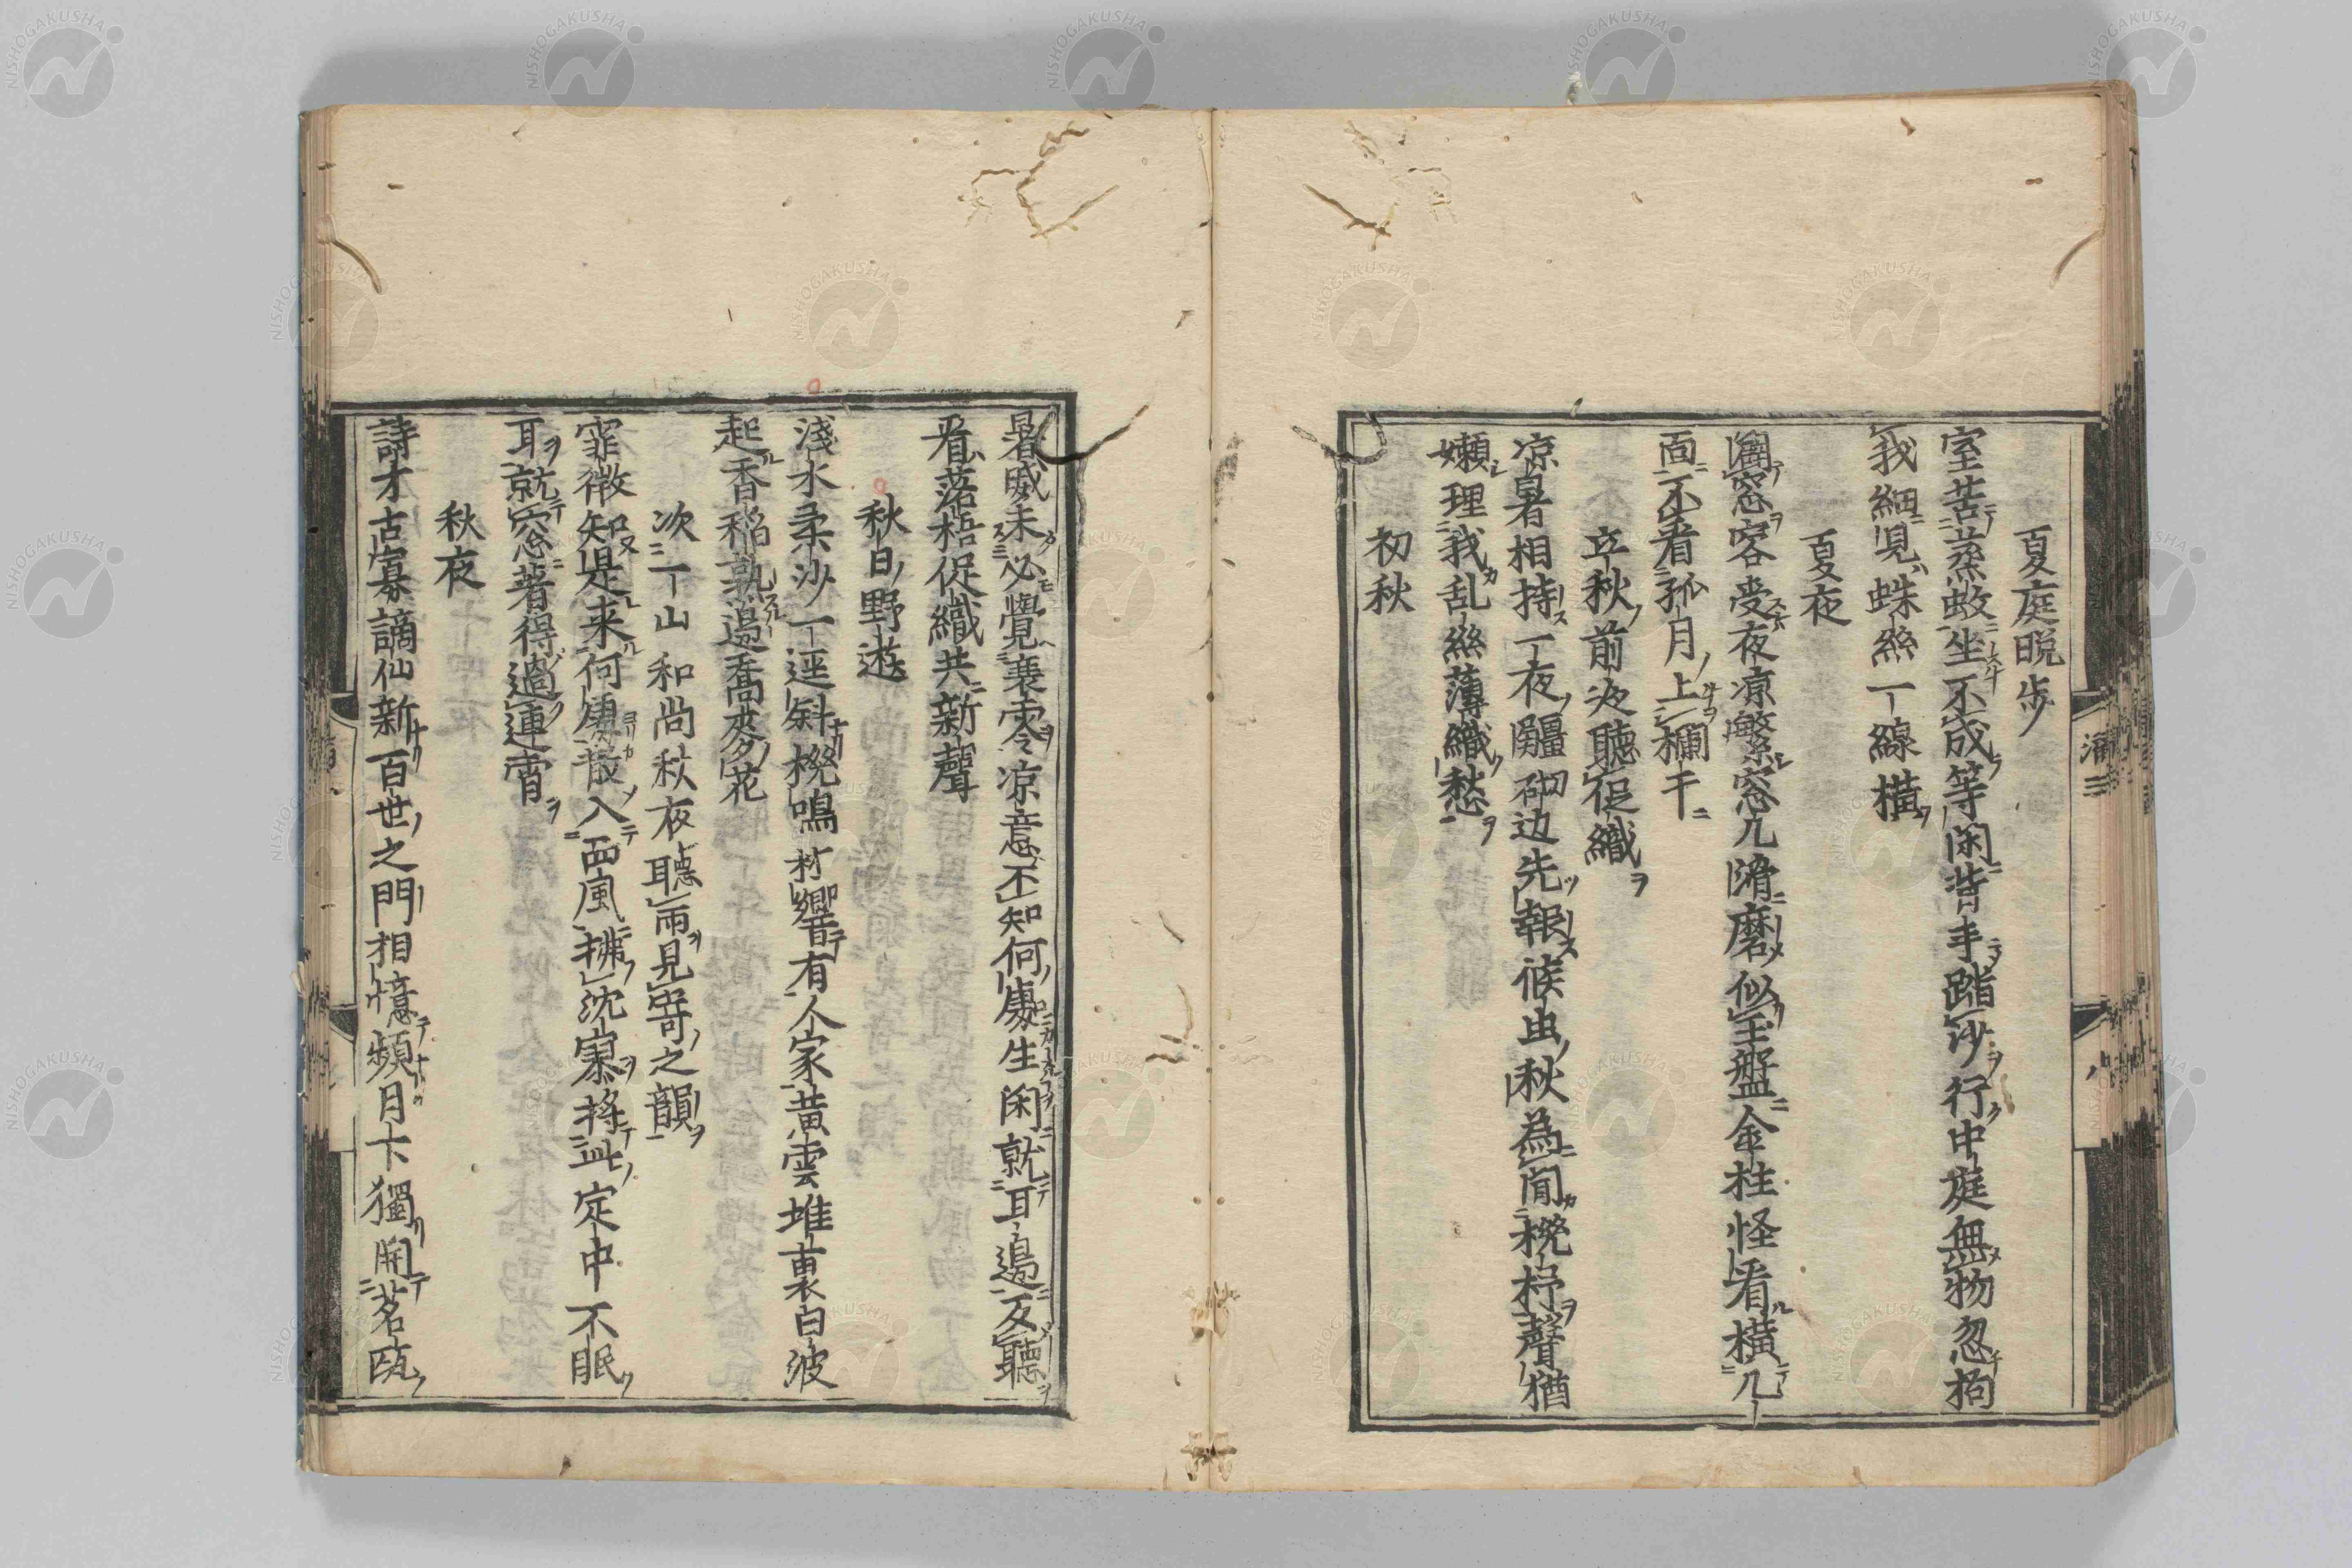 夏庭晩歩
室苦蒸蚊坐不成等閑背手踏沙行中庭無物忽拘
我細見蛛絲一線横
夏夜
濶窓客受夜凉繁窓几滑磨似玉盤金柱怪看横几
面不看孤月上欄干
立秋前夜聴促織
凉暑相持一夜疆砌边先報候虫秋為聞機杼聲猶
嬾理我乱絲薄織愁
初秋
暑威未必覺衰零凉意不知何處生閑就耳邉反聽
看落梧促織共新聲
秋日野遊
淺水柔沙一逕斜機鳴杼響有人家黄雲堆裏白波
起香稻孰邉喬麥花
次一山和尚秋夜聴雨見寄之韻
霏微知是来何處散入西風拂沈寥将此定中不眠
耳就窓著得過連宵
秋夜
詩才古寡謫仙新百世之門相憶頻月下獨開茗瓯